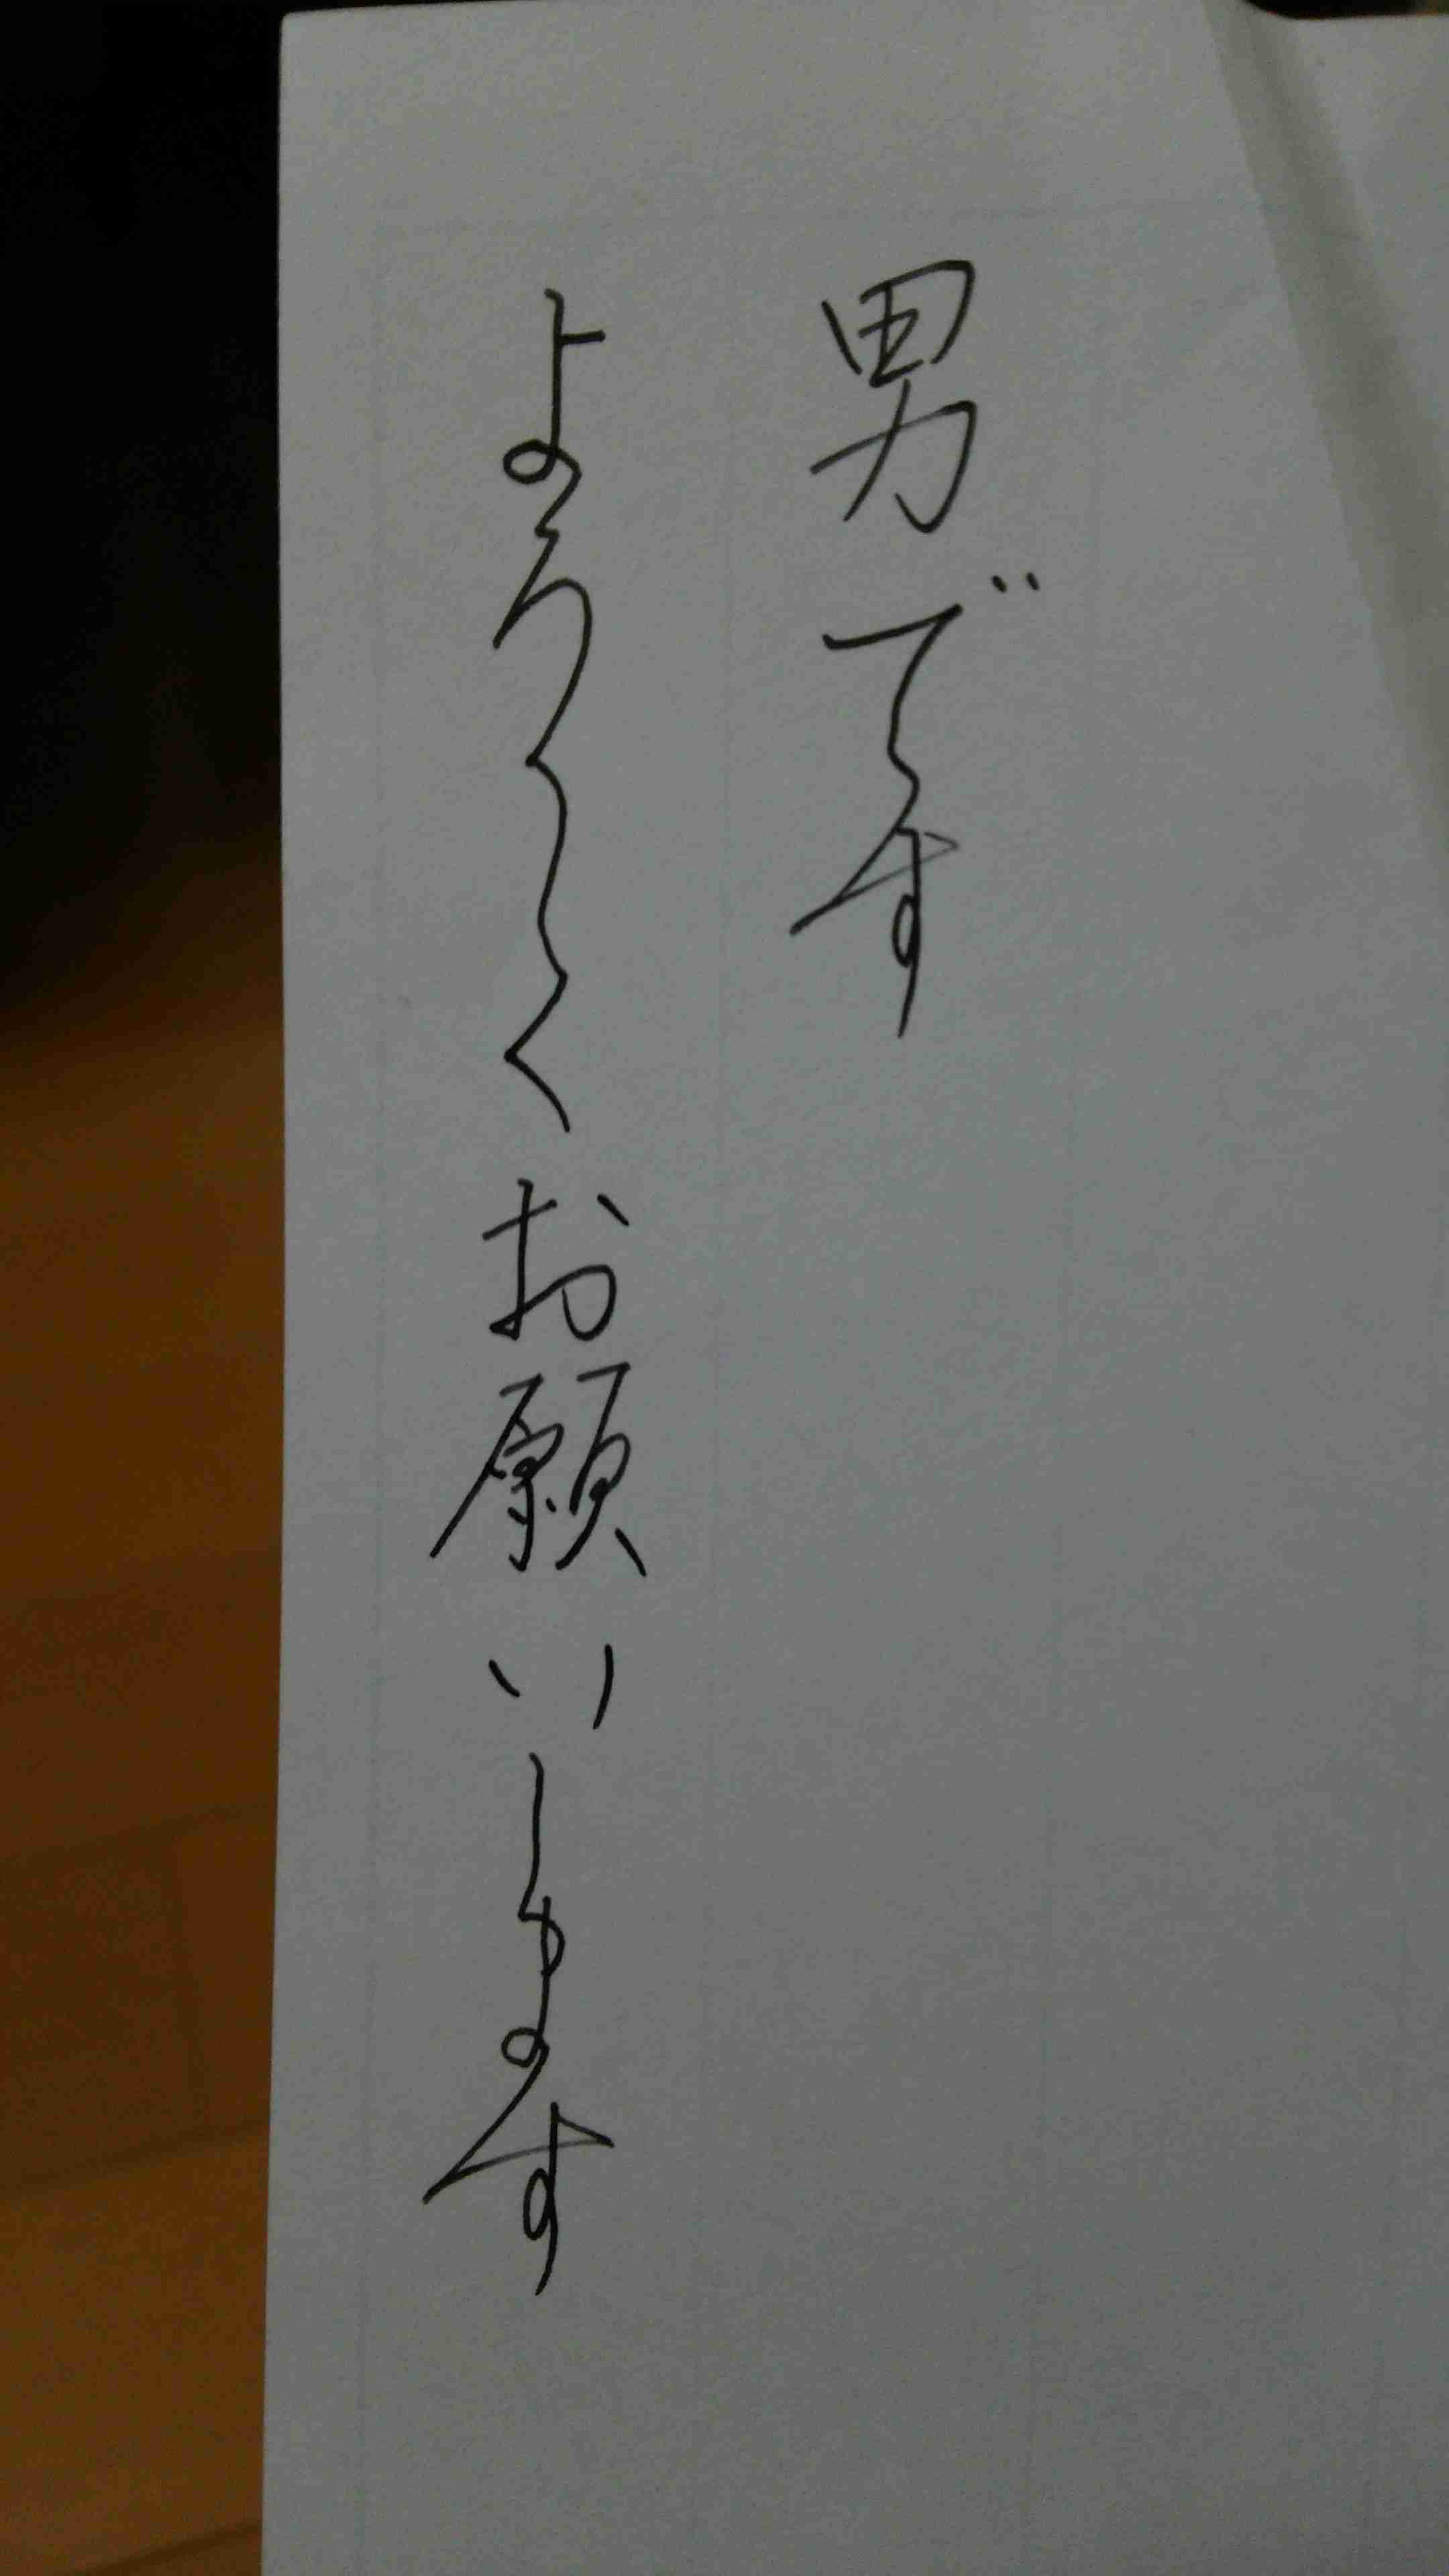 男です
よろしくお願いします